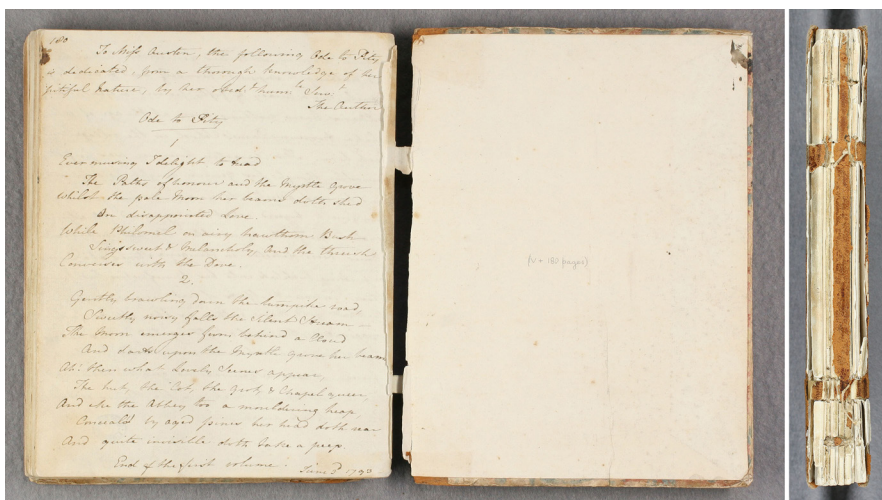 180
To Miss Austen, the following Ode to Pity
is dedicated, from a thorough knowledge of her
pitiful Nature, by her obedt humle Servt
The Author
Ode to Pity
1
Ever musing I delight to tread
The Paths of honour and the Myrtle Grove
Whilst the pale Moon her beams doth shed
On disappointed Love.
While Philomel on airy hawthorn Bush
Sings sweet & Melancholy, And the thrush
Converses with the Dove.
2.
Gently brawling down the turnpike road,
Sweetly noisy falls the Silent Stream—
The Moon emerges from behind a Cloud
And darts upon the Myrtle Grove her beam.
Ah! then what Lovely Scenes appear,
The hut, the Cot, the Grot, & Chapel queer,
And eke the Abbey too a mouldering heap,
Conceal'd by aged pines her head doth rear
And quite invisible doth take a peep.
End of the first volume.
June 3d 1793
(iv + 180 pages)